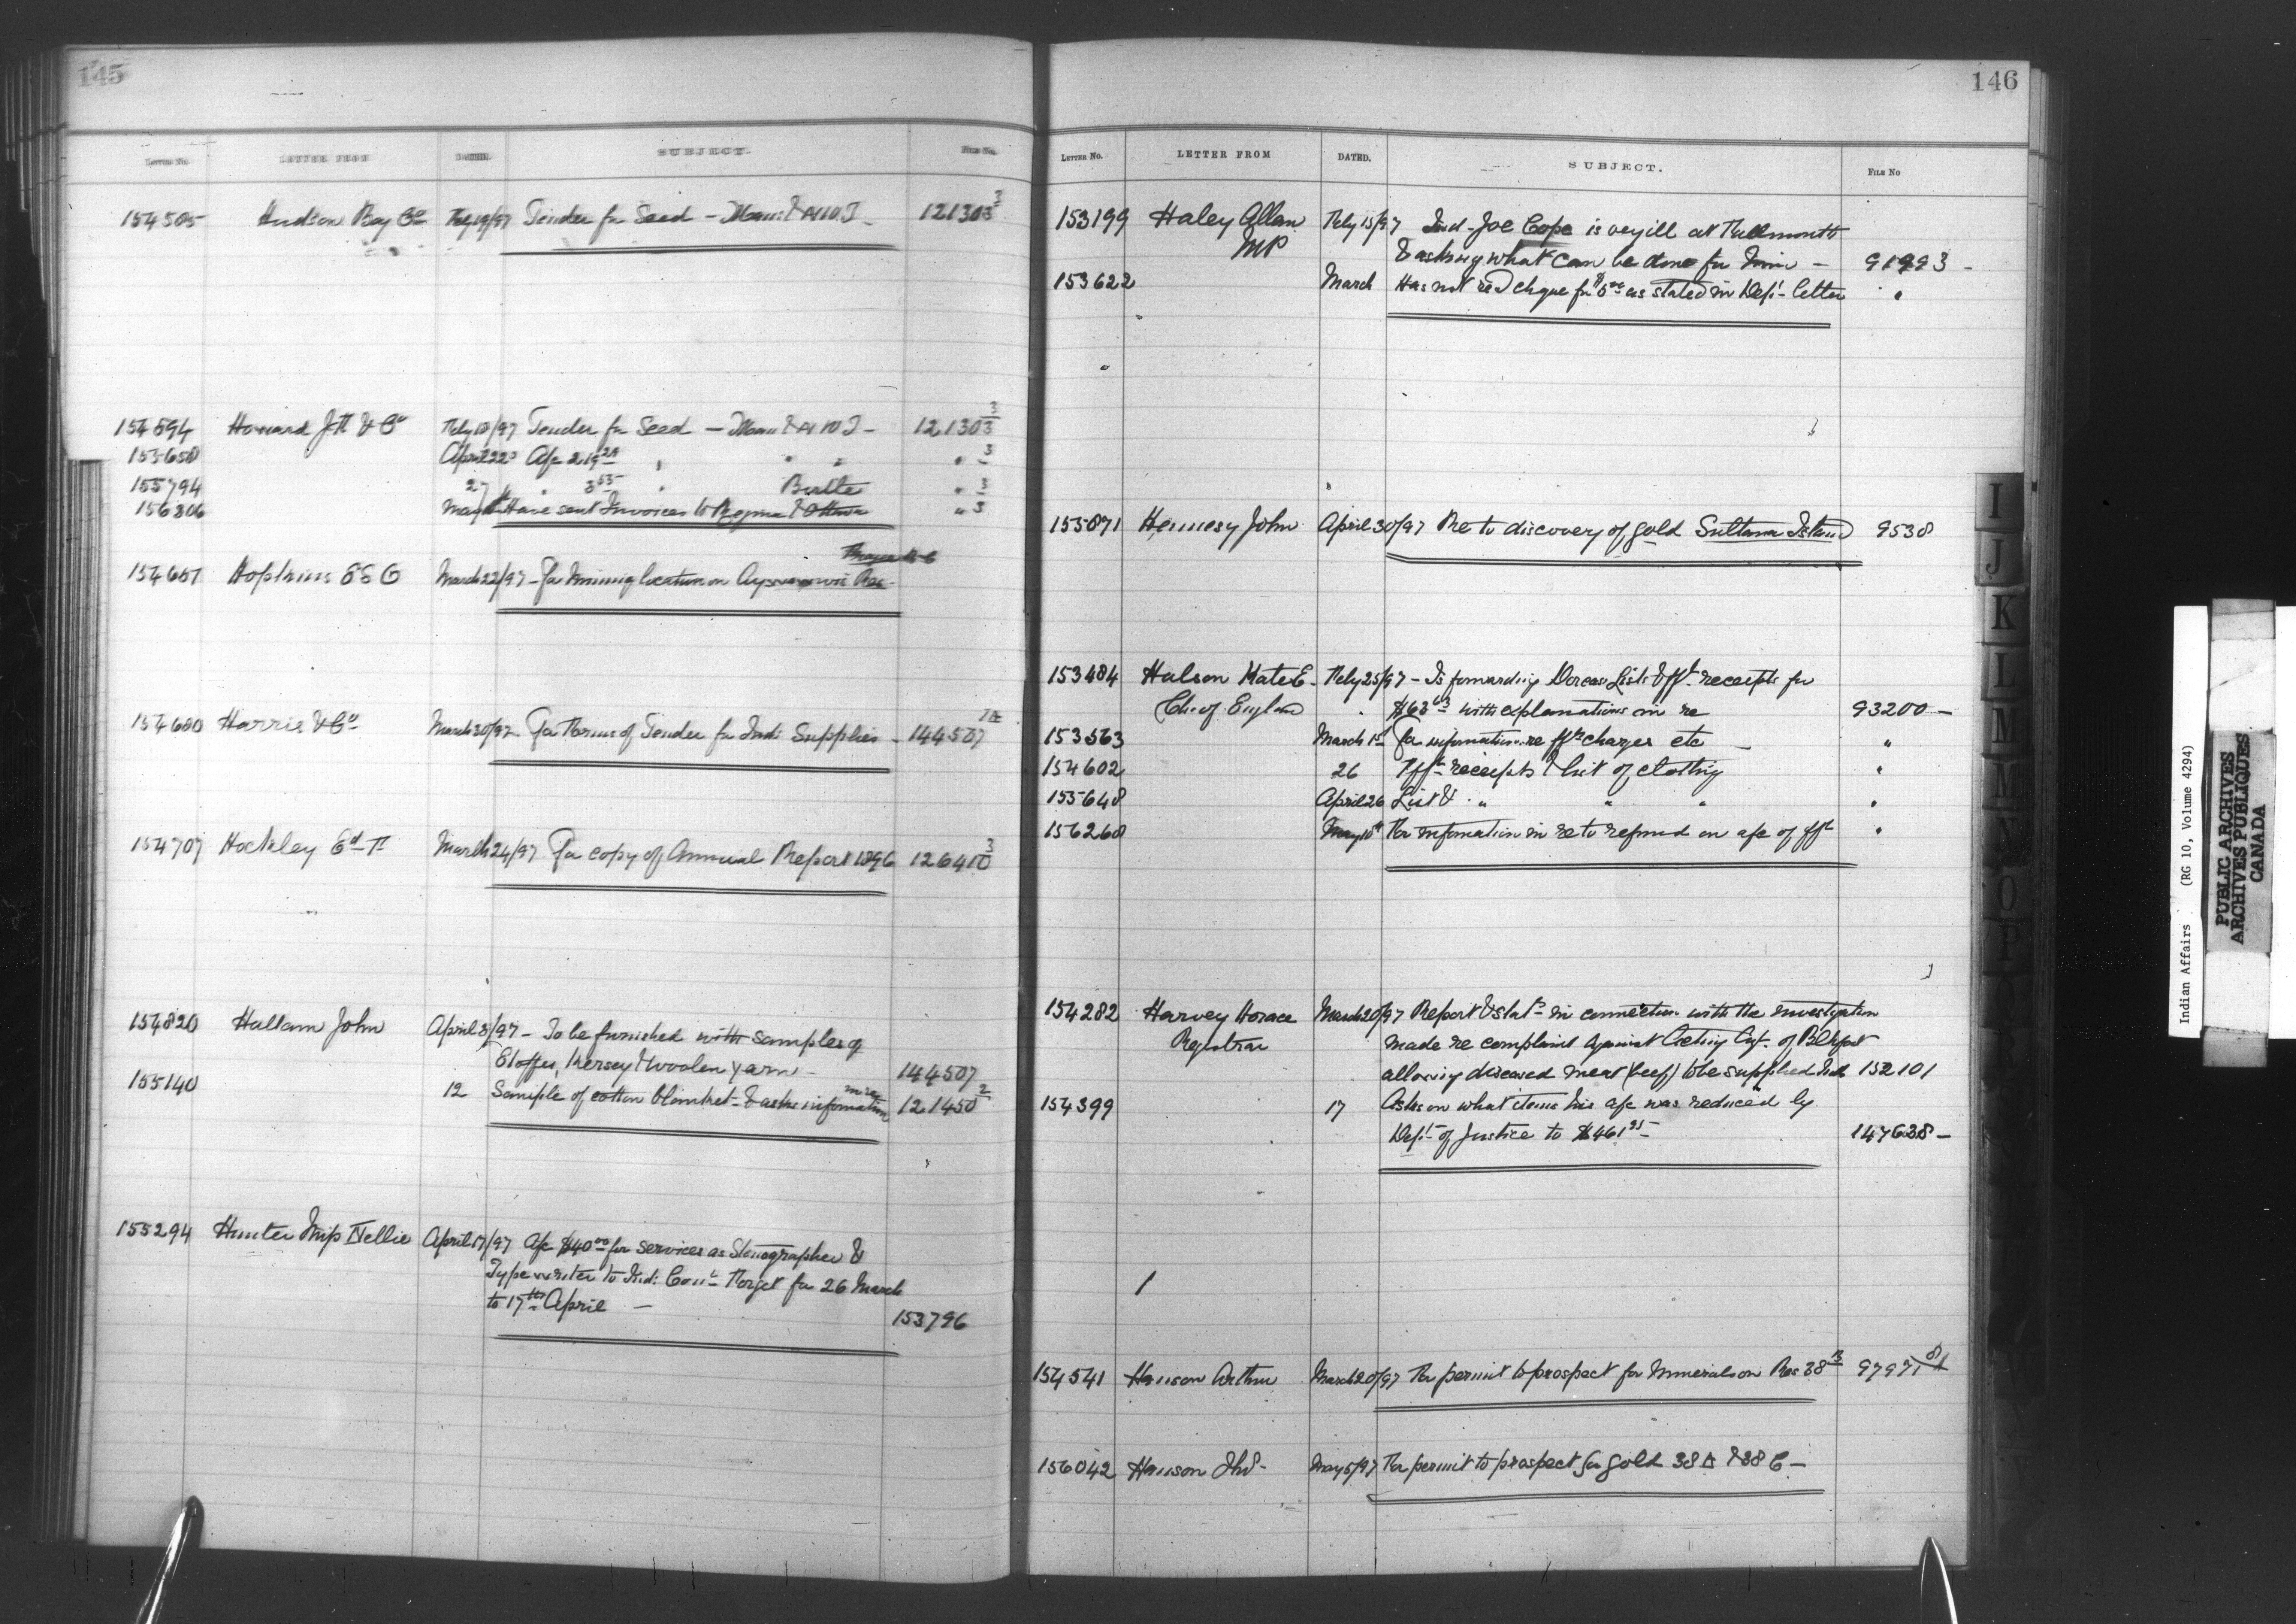 145
LETTER No. LETTER FROM DATED. SUBJECT. FILE No.
154505 Hudson Bay Co Feby 19/97 Tender for Seed — Man: & N W T — 121303 3
154594 Howard J H & Co Feby 18/97 Tender for Seed — Man & N W T — 121303 3
155658 April 22 A/c 219 " " " 3
155794 27 " " " Birtle " 3
156306 May Have sent Invoices to Regina & Ottawa " 3
154657 Hopkins E S G March 22/97 — for mining location on Res —
154680 Harris & Co March 30/97 — For Forms of Tender for Indi Supplies — 144507
154707 Hockley Ed T March 24/97 For copy of Annual Report 1896 126410 3
154820 Hallam John April 3/97 — To be furnished with samples of
Etoffes, Kersey & woolen yarn — 144507
more
155140 12 Sample of cotton blanket — & asks information 121450 2
155294 Hunter Miss Nellie April 17/97 A/c $40 00 for services as Stenographer &
Typewriter to Indi: Comr Forget for 26 March
to 17th April — 153796
146
LETTER No. LETTER FROM DATED. SUBJECT. FILE No
153199 Haley Allen Feby 15/97 Ind — Joe Cope is very ill at Falmouth
MP & asking what can be done for him — 91993 —
153622 March Has not recd cheque for $5 00 as stated in Dept. letter "
155871 Hennesy John April 30/97 Re to discovery of gold Sultana Island 9538
153484 Halson Kate E — Feby 25/97 — Is forwarding Dorcas Lists & fft receipts for
Ch: of England $63 63 with explanations in re 93200 —
153563 March 1st For information re fft charges etc — "
154602 26 Fft receipts & list of clothing "
155648 April 26 List & " " " "
156268 May 18th For information in re to refund on a/c of fft "
154282 Harvey Horace March 20/97 Report & Stats in connection with the investigation
Registrar made re complaint against Acting Agt. of Blkfoot
allowing diseased meat (beef) to be supplied Inds 152101
154399 17 Asks on what items his a/c was reduced by
Dept of Justice to $461 95 — 147638 —
154541 Hanson Arthur March 20/97 For permit to prospect for minerals on Res 38 B 97971
156042 Hanson Thos — May 5/97 For permit to prospect for gold 38 A & 38 C —
I
J
K
L
M
N
O
P
Indian Affairs (RG 10, Volume 4294)
PUBLIC ARCHIVES
ARCHIVES PUBLIQUES
CANADA